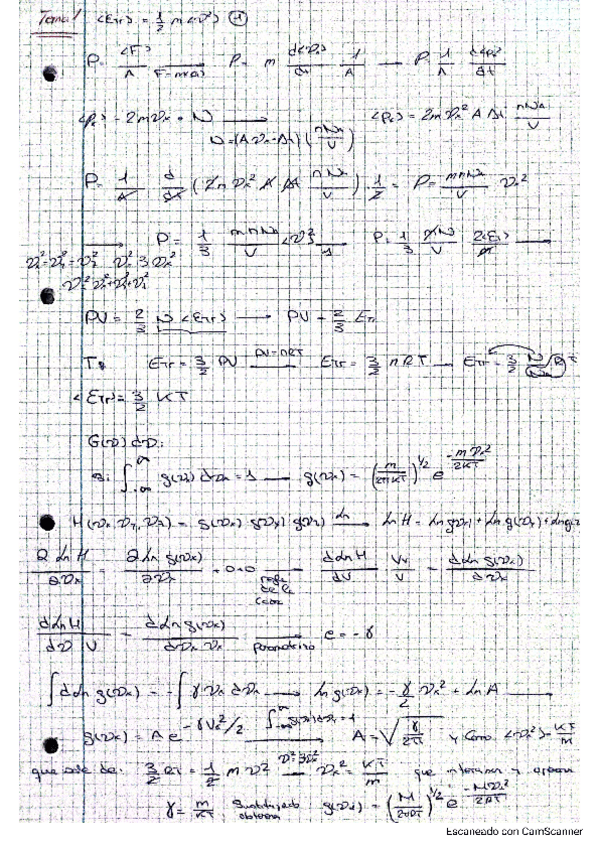 Tema 1 <Etr> = 1/2 m <v²> (1)
P = <F>/A F=m<a> P = m d<vx>/dt 1/A → P = 1/A d<px>/dt
<px> = 2mvx · N → N = (A vx · Δt) (nNA/V) <px> = 2mvx² A Δt nNA/V
P = 1/A d/dt (2m vx² A Δt nNA/V) · 1/2 = P = mnNA/V vx²
→ P = 1/3 mnNA/V <v²> → P = 1/3 N/V 2<Etr> →
vx² = vy² = vz² v² = 3vx²
v² = vx² + vy² + vz²
PV = 2/3 N <Etr> → PV = 2/3 Etr
Etr = 3/2 PV PV=nRT → Etr = 3/2 nRT → Etr = 3/2
<Etr> = 3/2 KT
G(v)dv:
∫ g(vx) dvx = 1 → g(vx) = (m/2πKT)^1/2 e^-mvx²/2KT
H(vx, vy, vz) = g(vx) g(vy) g(vz) Ln → Ln H = Ln g(vx) + Ln g(vy) + Ln g(vz)
∂ Ln H/∂vx = ∂ Ln g(vx)/∂vx + 0+0 regla de la cadena dLnH/dv vx/v = dLn g(vx)/dvx
dLnH/dv v = dLn g(vx)/dvx vx → = -γ
∫ dLn g(vx) = -∫ γ vx dvx → Ln g(vx) = -γ/2 vx² + Ln A
g(vx) = A e^-γvx²/2 ∫ g(vx)dvx = 1 → A = √γ/2π y como <vx²> = KT/m
que sale de: 3/2 KT = 1/2 m v² v²=3vx² → vx² = KT/m que y
γ = m/KT g(vx) = (M/2πRT)^1/2 e^-Mvx²/2RT
Escaneado con CamScanner